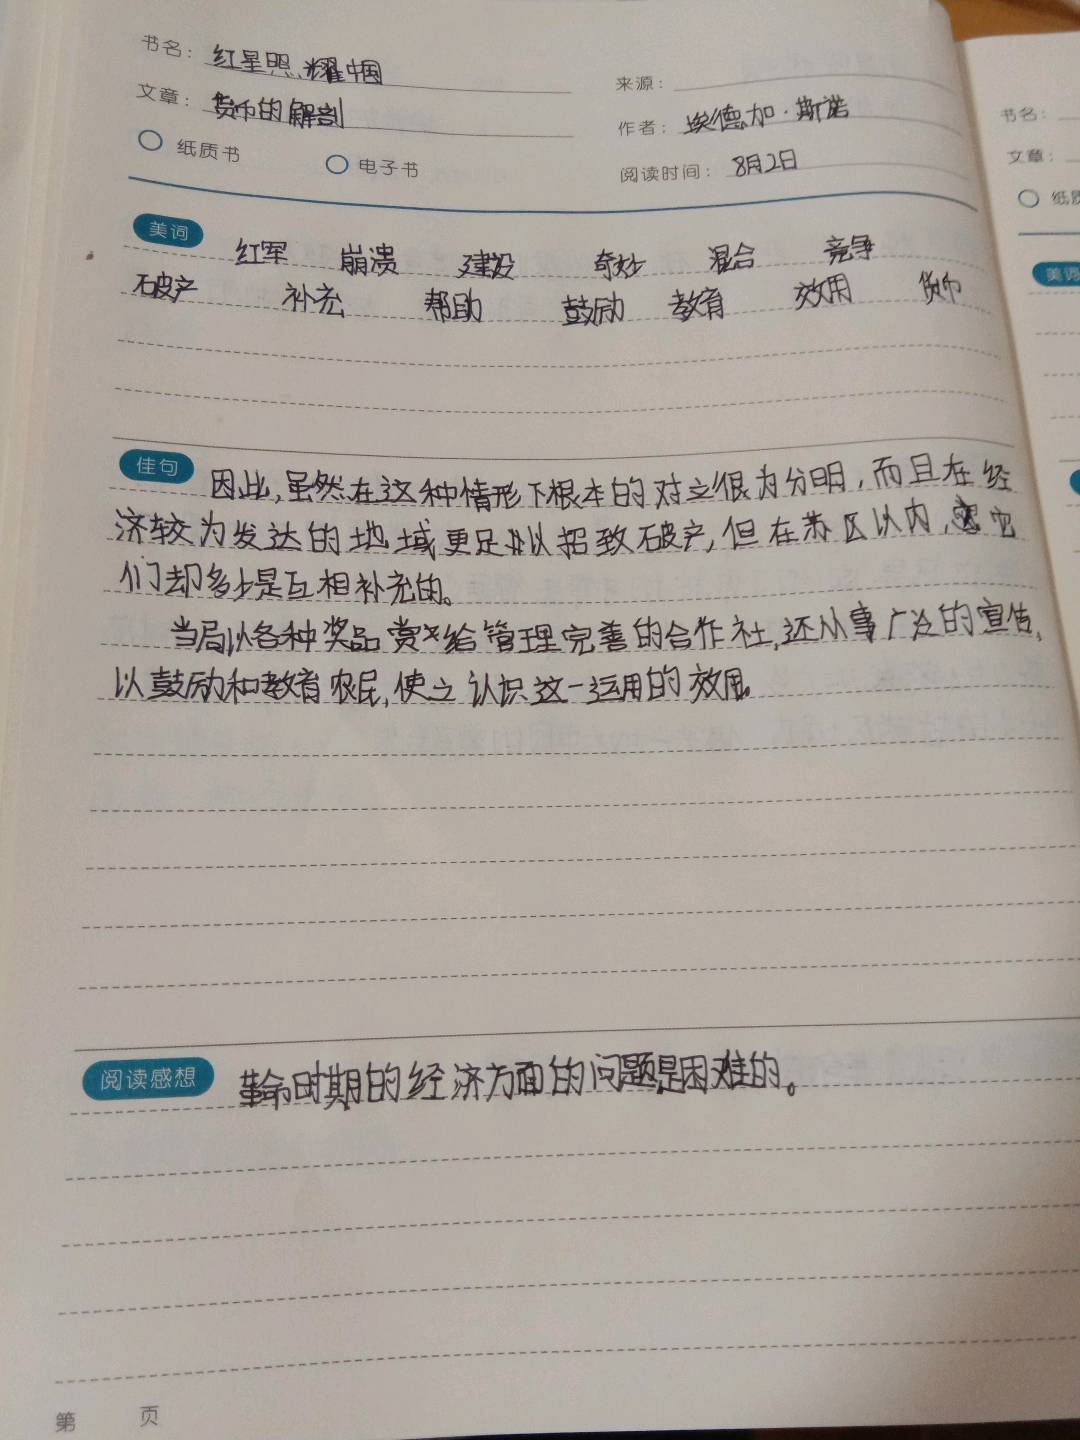 书名：红星照耀中国
来源：
文章：货币的解剖
作者：埃德加·斯诺
纸质书 电子书
阅读时间：8月2日
美词 红军 崩溃 建设 奇妙 混合 竞争
破产 补充 帮助 鼓励 教育 效用 货币
佳句 因此,虽然在这种情形下根本的对立很为分明,而且在经
济较为发达的地域更足以招致破产,但在苏区以内,它
们却多少是互相补充的。
当局以各种奖品赏给管理完善的合作社,还从事广泛的宣传,
以鼓励和教育农民,使之认识这一运用的效用。
阅读感想 革命时期的经济方面的问题是困难的。
第 页
书名：
文章：
纸质
美词